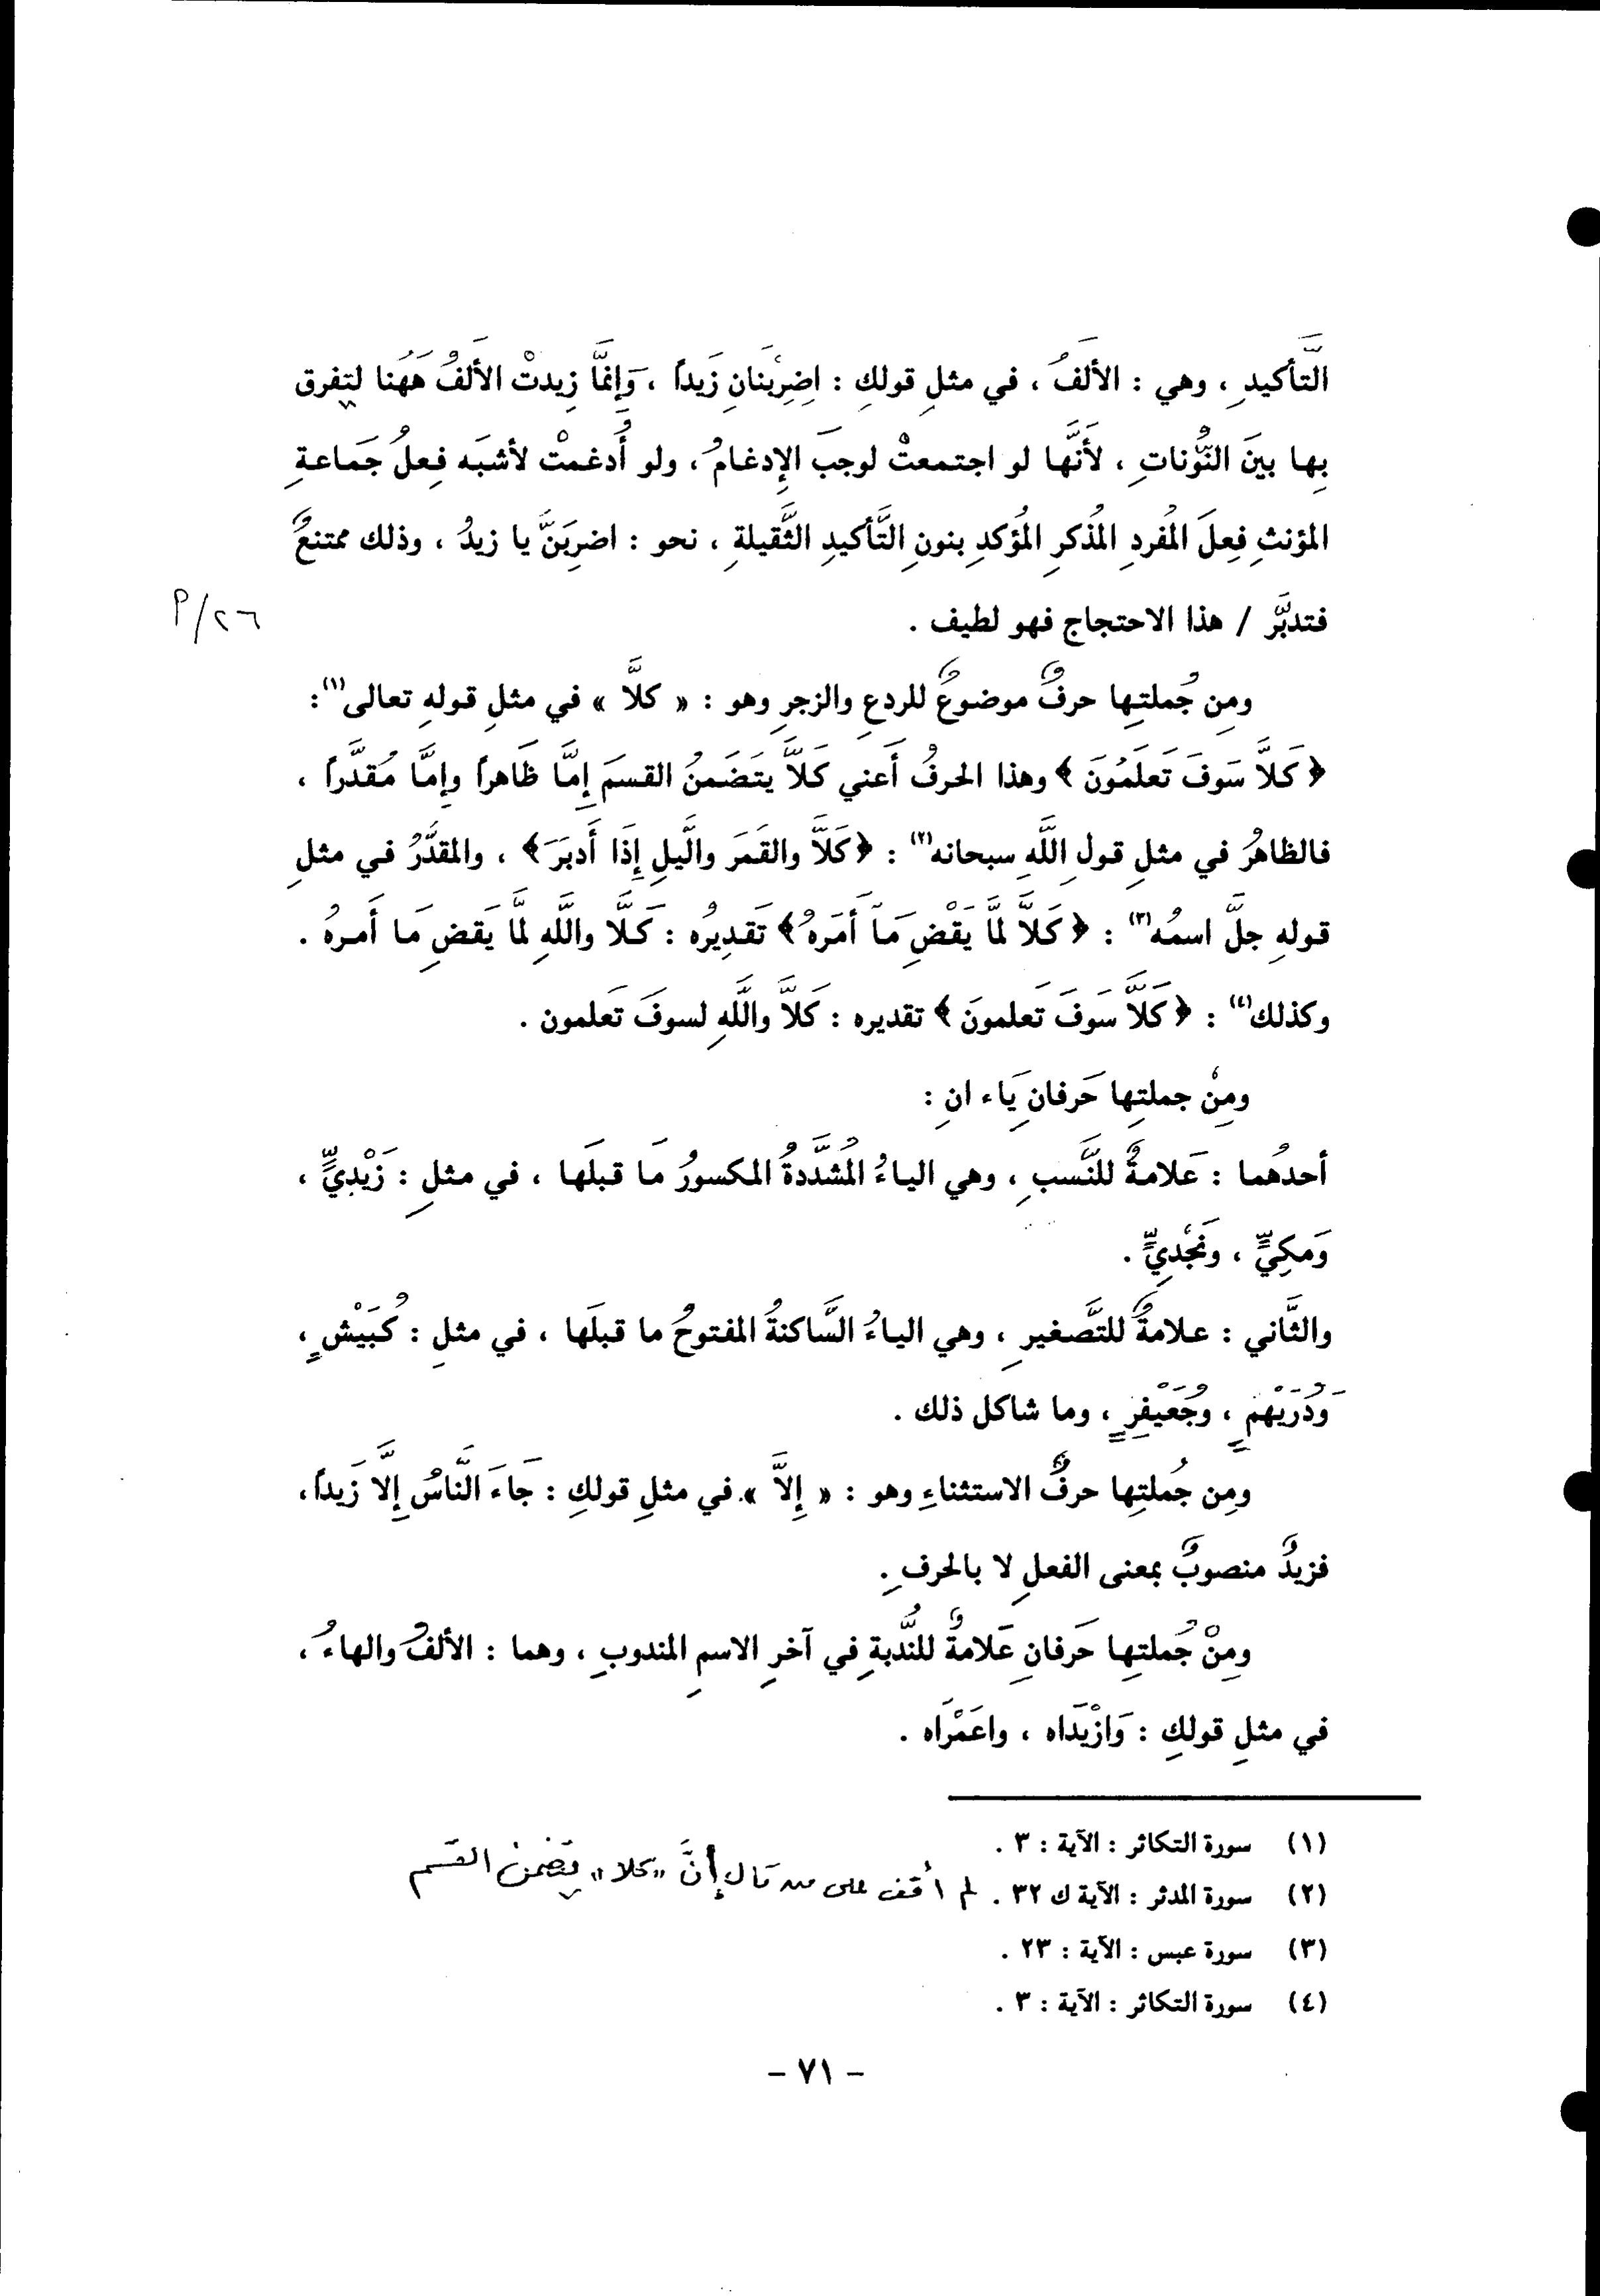 التَّأكيدِ ، وهي : الألفُ ، في مثلِ قولكِ : اِضرِبْنَانِ زَيداً ، وَإِنَّمَا زِيدتْ الأَلفُ هَهُنا لتفرق
بِها بينَ النُّوناتِ ، لأَنَّها لو اجتمعتْ لوجبَ الإِدغامُ ، ولو أُدغمتْ لأشبَه فِعلُ جَماعةِ
المؤنثِ فِعلَ المُفردِ المُذكرِ المُؤكدِ بنونِ التَّأكيدِ الثَّقيلةِ ، نحو : اضربَنَّ يا زيدُ ، وذلك ممتنعٌ
فتدبَّر / هذا الاحتجاج فهو لطيف .
٢٦/م
ومِن جُملتِها حرفٌ موضوعٌ للردعِ والزجرِ وهو : « كلَّا » في مثلِ قولهِ تعالى(١):
﴿ كَلاَّ سَوفَ تَعلَمُونَ ﴾ وهذا الحرفُ أَعني كَلاَّ يتَضَمنُ القسمَ إِمَّا ظَاهراً وإِمَّا مُقدَّراً ،
فالظاهرُ في مثلِ قولِ اللَّهِ سبحانه(٢) : ﴿كَلاَّ والقَمَرَ والَّيلِ إِذَا أَدبَرَ﴾ ، والمقدَّرُ في مثلِ
قولهِ جلَّ اسمُه(٣) : ﴿ كَلاَّ لمَّا يَقْضِ مَآ أَمَرَهُ﴾ تَقديرُه : كَلَّا واللَّهِ لمَّا يَقضِ مَا أَمرهُ .
وكذلك(٤) : ﴿ كَلاَّ سَوفَ تَعلمونَ ﴾ تقديره : كَلاَّ واللَّهِ لسوفَ تَعلمون .
ومِنْ جملتِها حَرفانِ يَاء انِ :
أحدُهما : عَلامةٌ للنَّسبِ ، وهي الياءُ المُشدَّدةُ المكسورُ مَا قبلَها ، في مثلِ : زَيْدِيٍّ ،
وَمكِيٍّ ، ونَجْدِيٍّ .
والثَّاني : علامةٌ للتَّصغيرِ ، وهي الياءُ السَّاكنةُ المفتوحُ ما قبلَها ، في مثلِ : كُبَيْشٍ ،
وَدُرَيْهمٍ ، وجُعَيْفِرٍ ، وما شاكل ذلك .
ومِن جُملتِها حرفُ الاستثناءِ وهو : « إِلاَّ » في مثلِ قولكِ : جَاءَ النَّاسُ إِلَّا زَيداً ،
فزيدٌ منصوبٌ بمعنى الفعلِ لا بالحرفِ .
ومِنْ جُملتِها حَرفانِ عَلامةٌ للنُّدبةِ في آخرِ الاسمِ المندوبِ ، وهما : الألفُ والهاءُ ،
في مثلِ قولكِ : وَازْيَداه ، واعَمْرَاه .
(١) سورة التكاثر : الآية : ٣ .
(٢) سورة المدثر : الآية ك ٣٢ . لم أقف على من قال إنَّ «كلا» يتضمن القسم
(٣) سورة عبس : الآية : ٢٣ .
(٤) سورة التكاثر : الآية : ٣ .
- ٧١ -